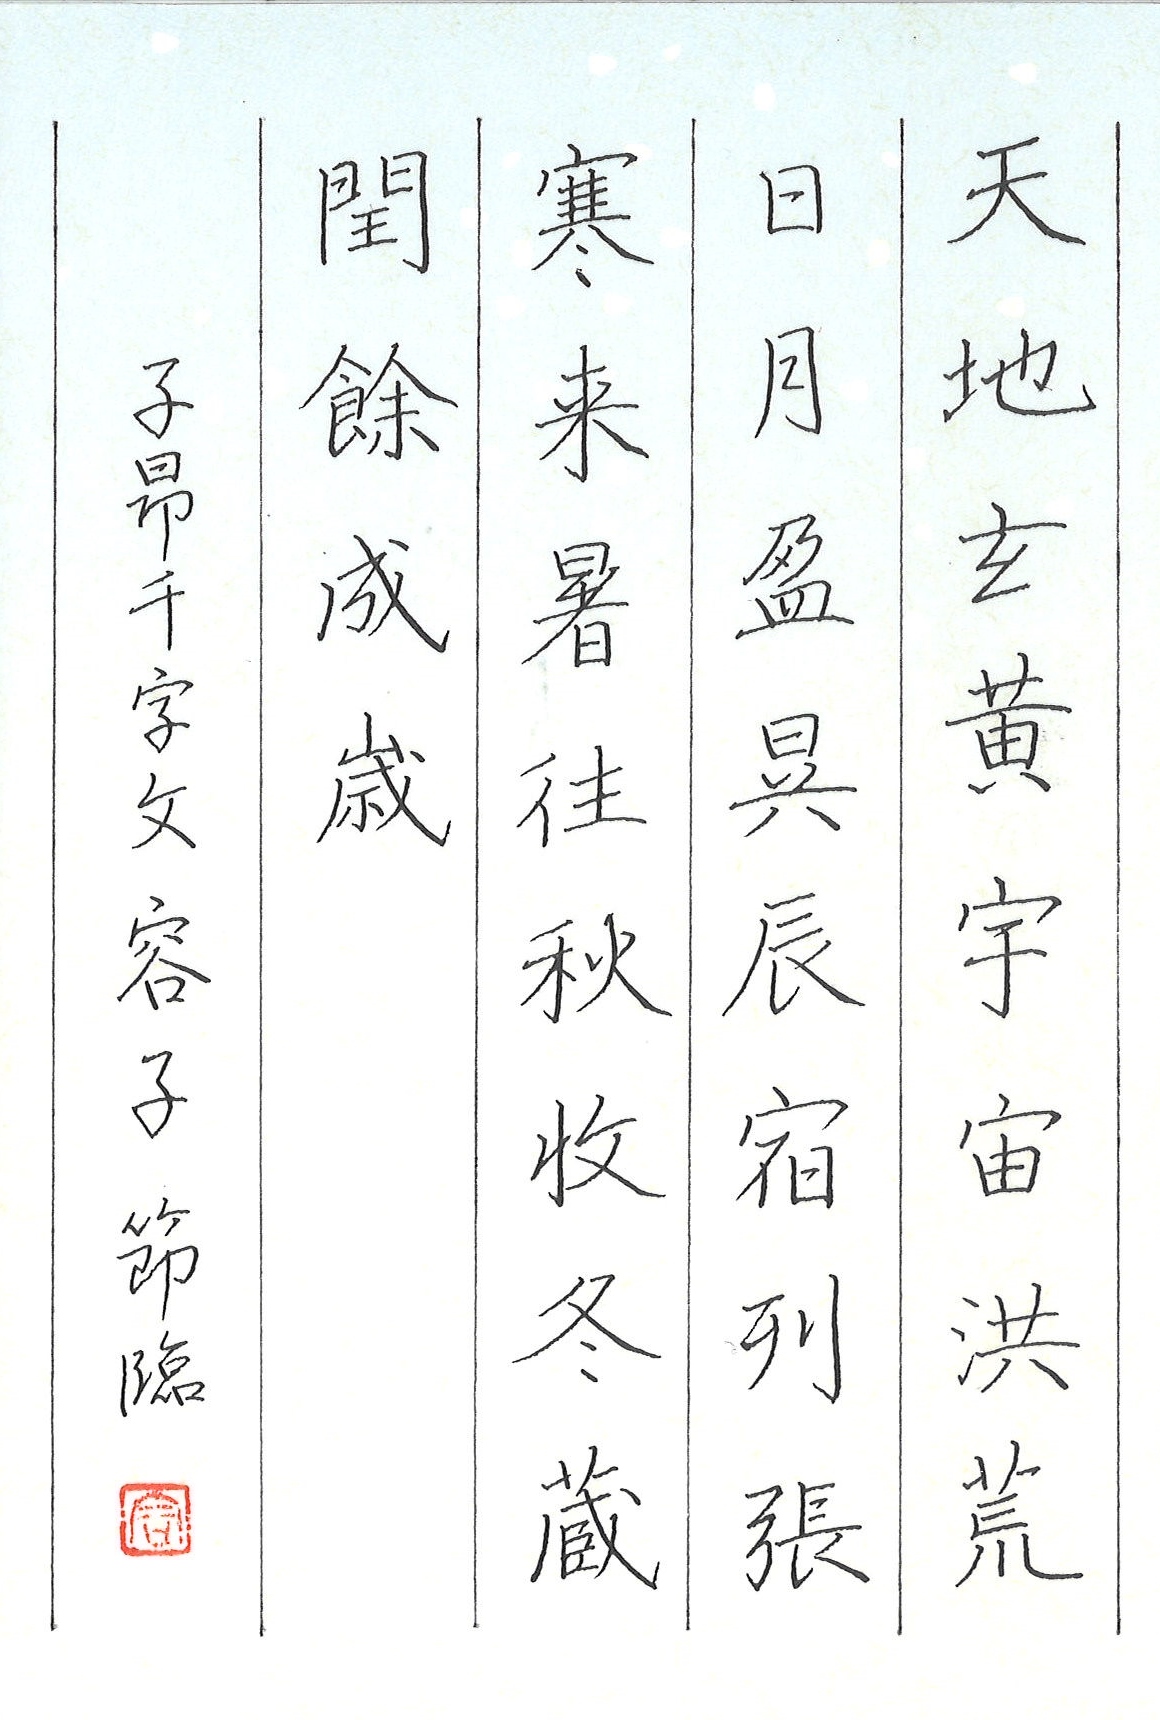 天地玄黄宇宙洪荒
日月盈昃辰宿列張
寒来暑往秋收冬蔵
閏餘成歳
子昂千字文 容子節臨
容